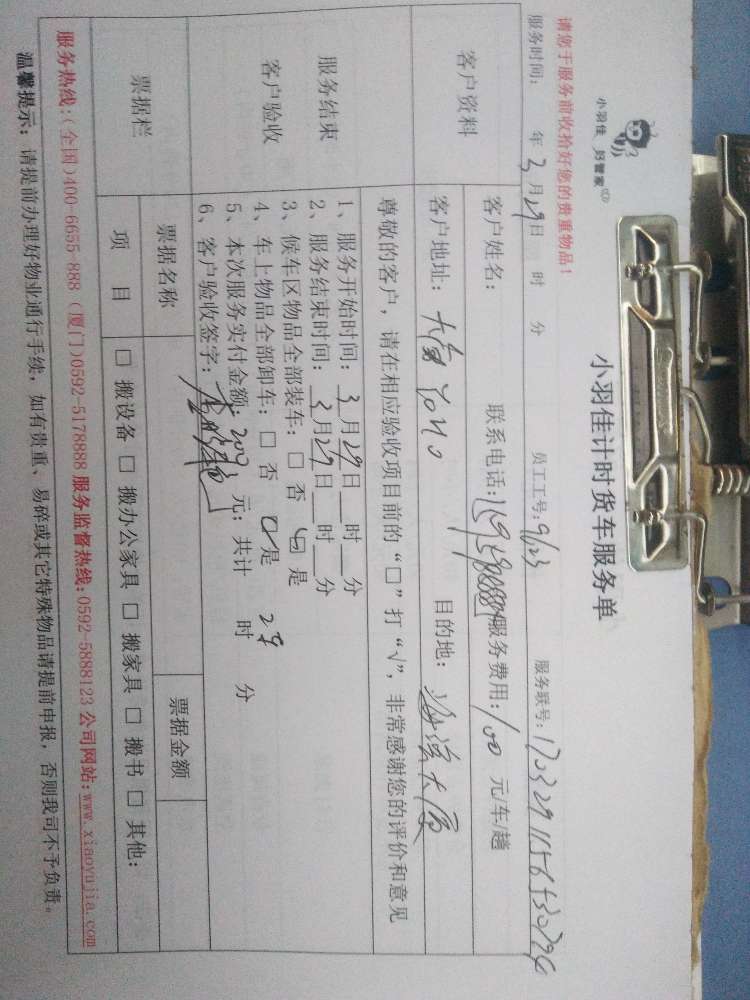 小羽佳 好管家
小羽佳计时货车服务单
请您于服务前收拾好您的贵重物品!
服务时间: 年3月29日 时 分 员工工号:9123 服务联号:
客户资料
客户姓名: 联系电话: 服务费用:100 元/车/趟
客户地址: 大唐YOHO 目的地:
服务结束
客户验收
尊敬的客户,请在相应验收项目前的“□”打“√”,非常感谢您的评价和意见
1、服务开始时间:3月29日__时__分
2、服务结束时间:3月29日__时__分
3、候车区物品全部装车:□ 否 ☑ 是
4、车上物品全部卸车:□ 否 ☑ 是 2车
5、本次服务实付金额:200 元;共计 时 分
6、客户验收签字:
票据栏
票据名称 票据金额
项 目 □ 搬设备 □ 搬办公家具 □ 搬家具 □ 搬书 □ 其他:
服务热线:(全国)400-6655-888 (厦门)0592-5178888 服务监督热线:0592-5888123 公司网站:www.xiaoyujia.com
温馨提示:请提前办理好物业通行手续,如有贵重、易碎或其它特殊物品请提前申报,否则我司不予负责。